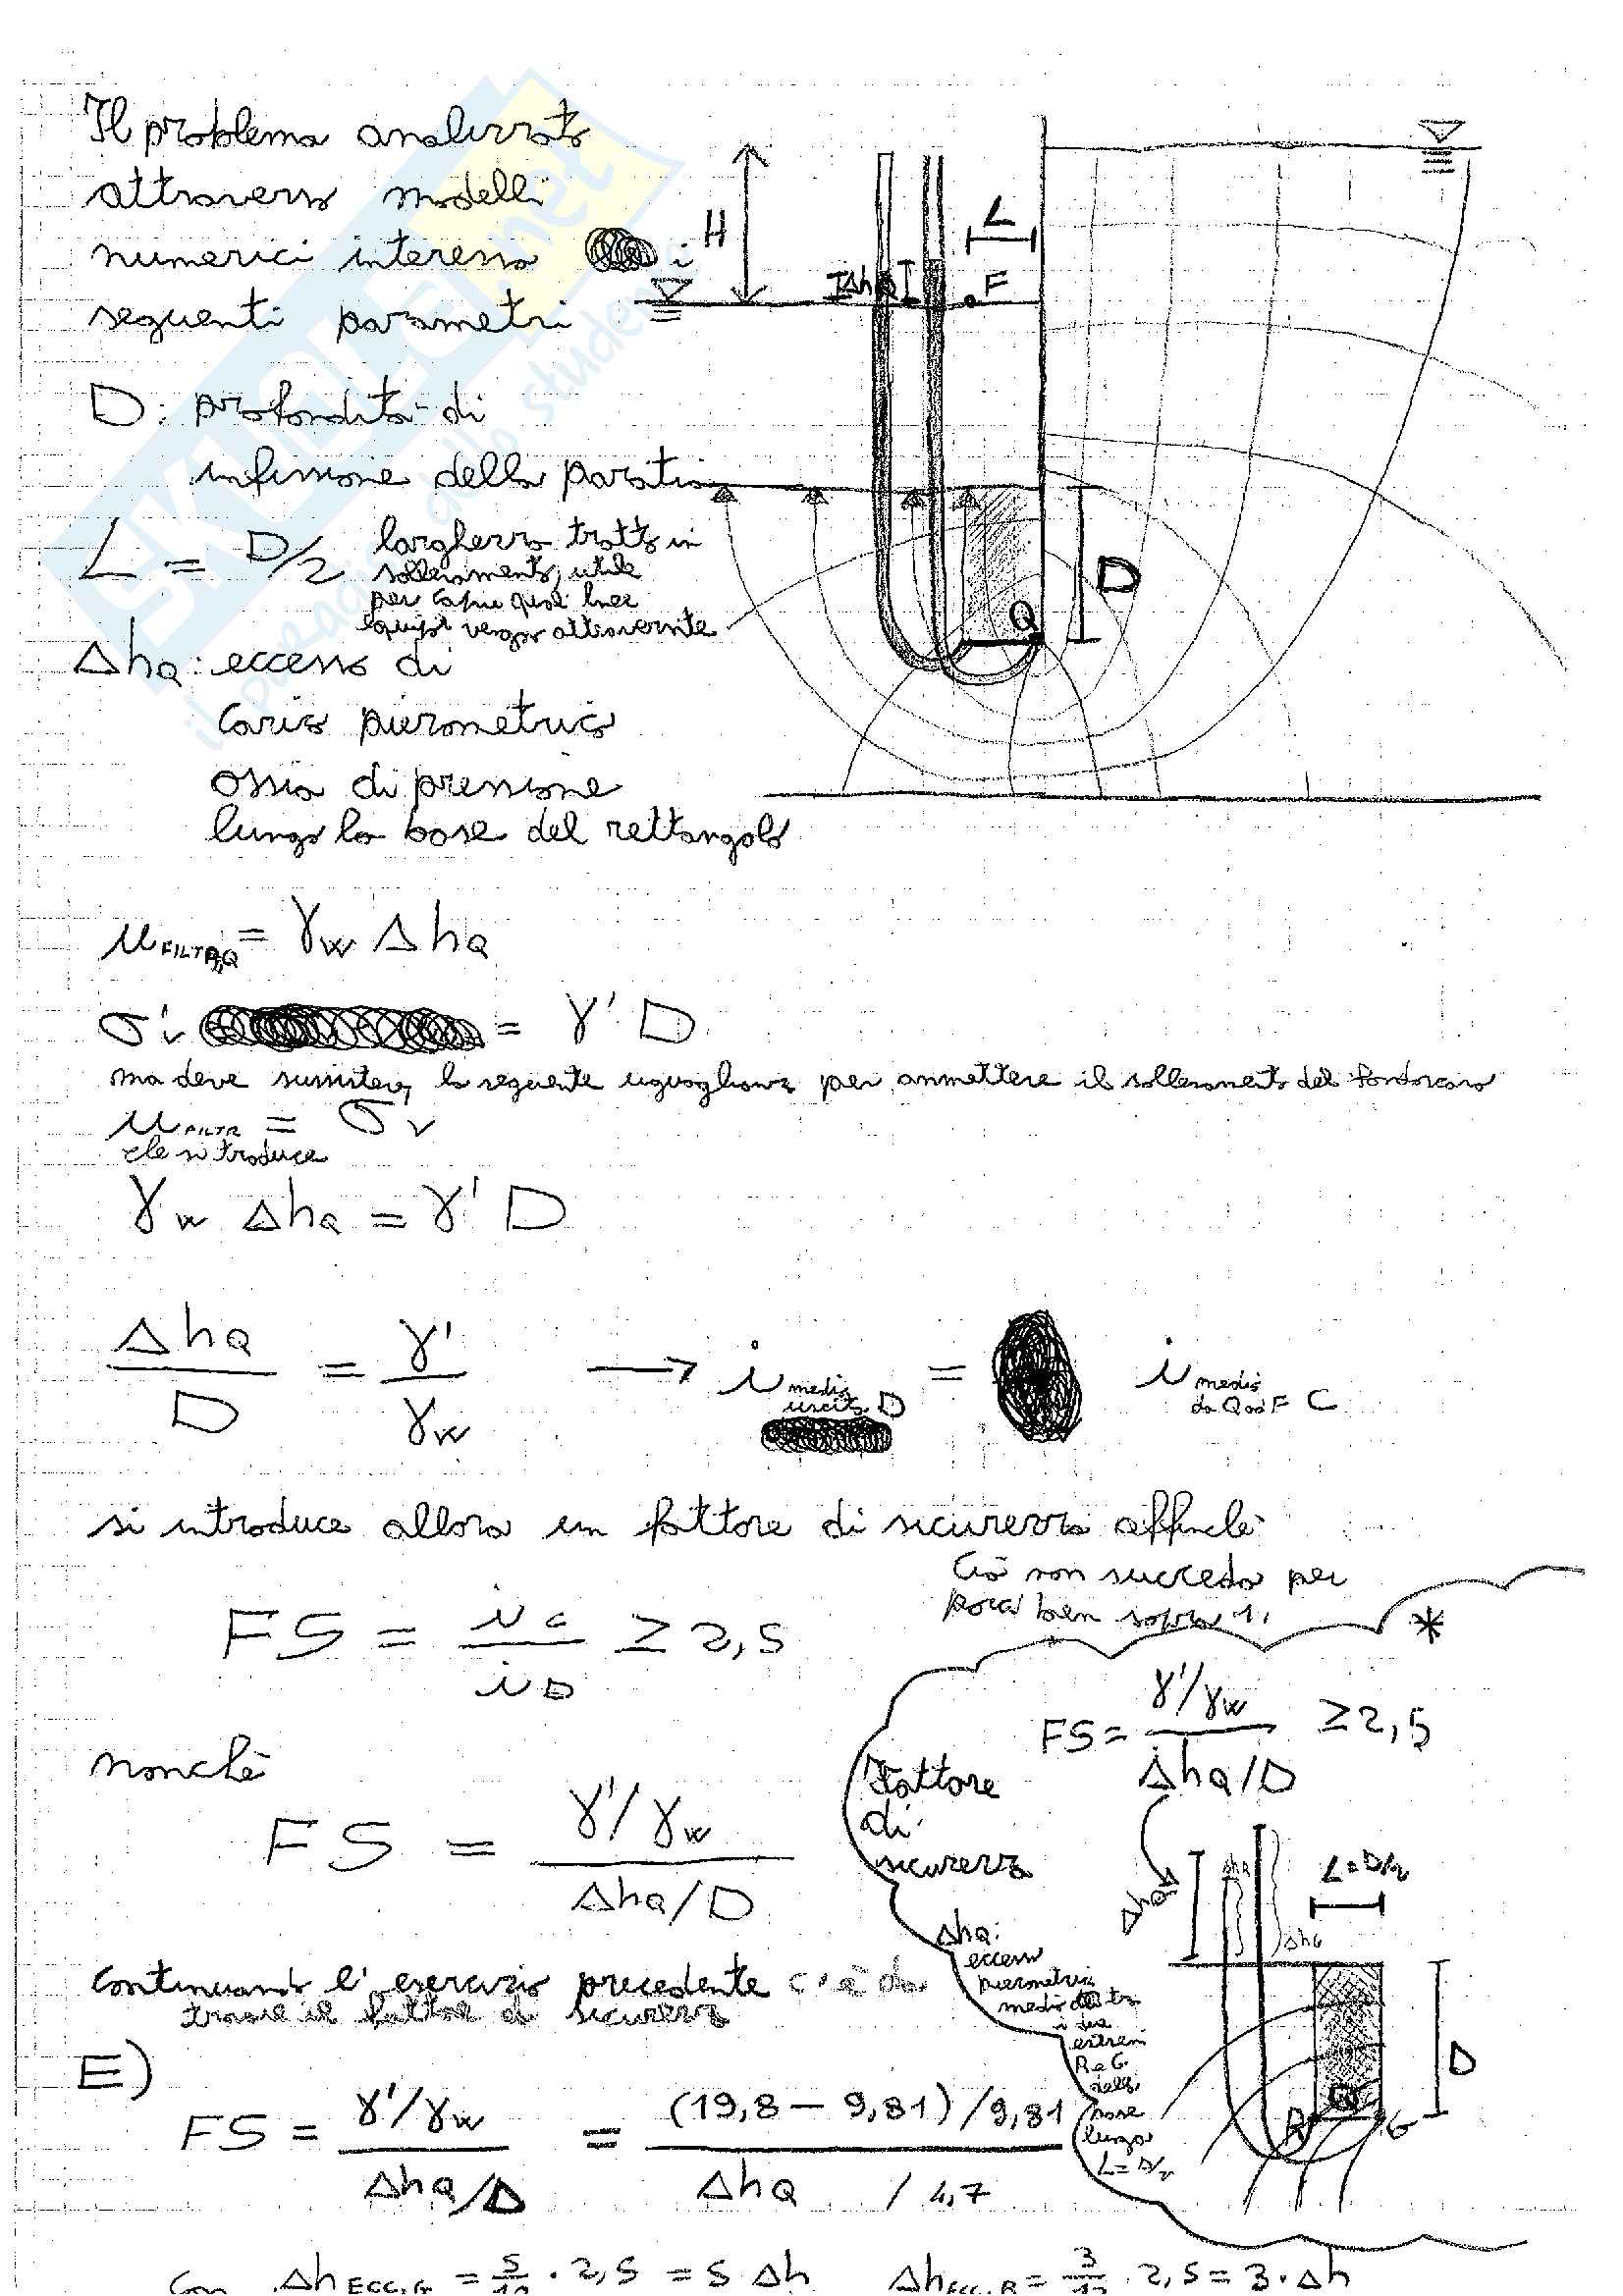 Il problema analizzato
attraverso modelli
numerici interessa i
seguenti parametri
D: profondità di
infissione della paratia
L = D/2 larghezza tratto in
sollevamento, utile
per capire quali linee
equipot vengon attraversate
ΔhQ: eccesso di
carico piezometrico
ossia di pressione
lungo la base del rettangolo
H
ΔhQ
L
F
Q
D
uFILTR,Q = γw ΔhQ
σ'v = γ' D
ma deve sussistere la seguente uguaglianza per ammettere il sollevamento del fondoscavo
uFILTR = σv
che si traduce
γw ΔhQ = γ' D
ΔhQ/D = γ'/γw → i medio uscita D = i medio da Q ad F C
si introduce allora un fattore di sicurezza affinché
ciò non succeda per
porci ben sopra 1.
FS = ic/iD ≥ 2,5
*
FS = (γ'/γw)/(ΔhQ/D) ≥ 2,5
nonché
FS = (γ'/γw)/(ΔhQ/D)
Fattore
di
sicurezza
ΔhQ
ΔhR
ΔhG
L=D/2
D
Q
R
G
ΔhQ:
eccesso
piezometrico
medio tra
i due
estremi
R e G
della
base
lungo
L=D/2
Continuando l'esercizio precedente c'è da
trovare il fattore di sicurezza
E)
FS = (γ'/γw)/(ΔhQ/D) = ((19,8 – 9,81)/9,81)/(ΔhQ / 4,7)
Con ΔhECC,G = 5/12 · 2,5 = 5 Δh ΔhECC,R = 3/12 · 2,5 = 3 · Δh